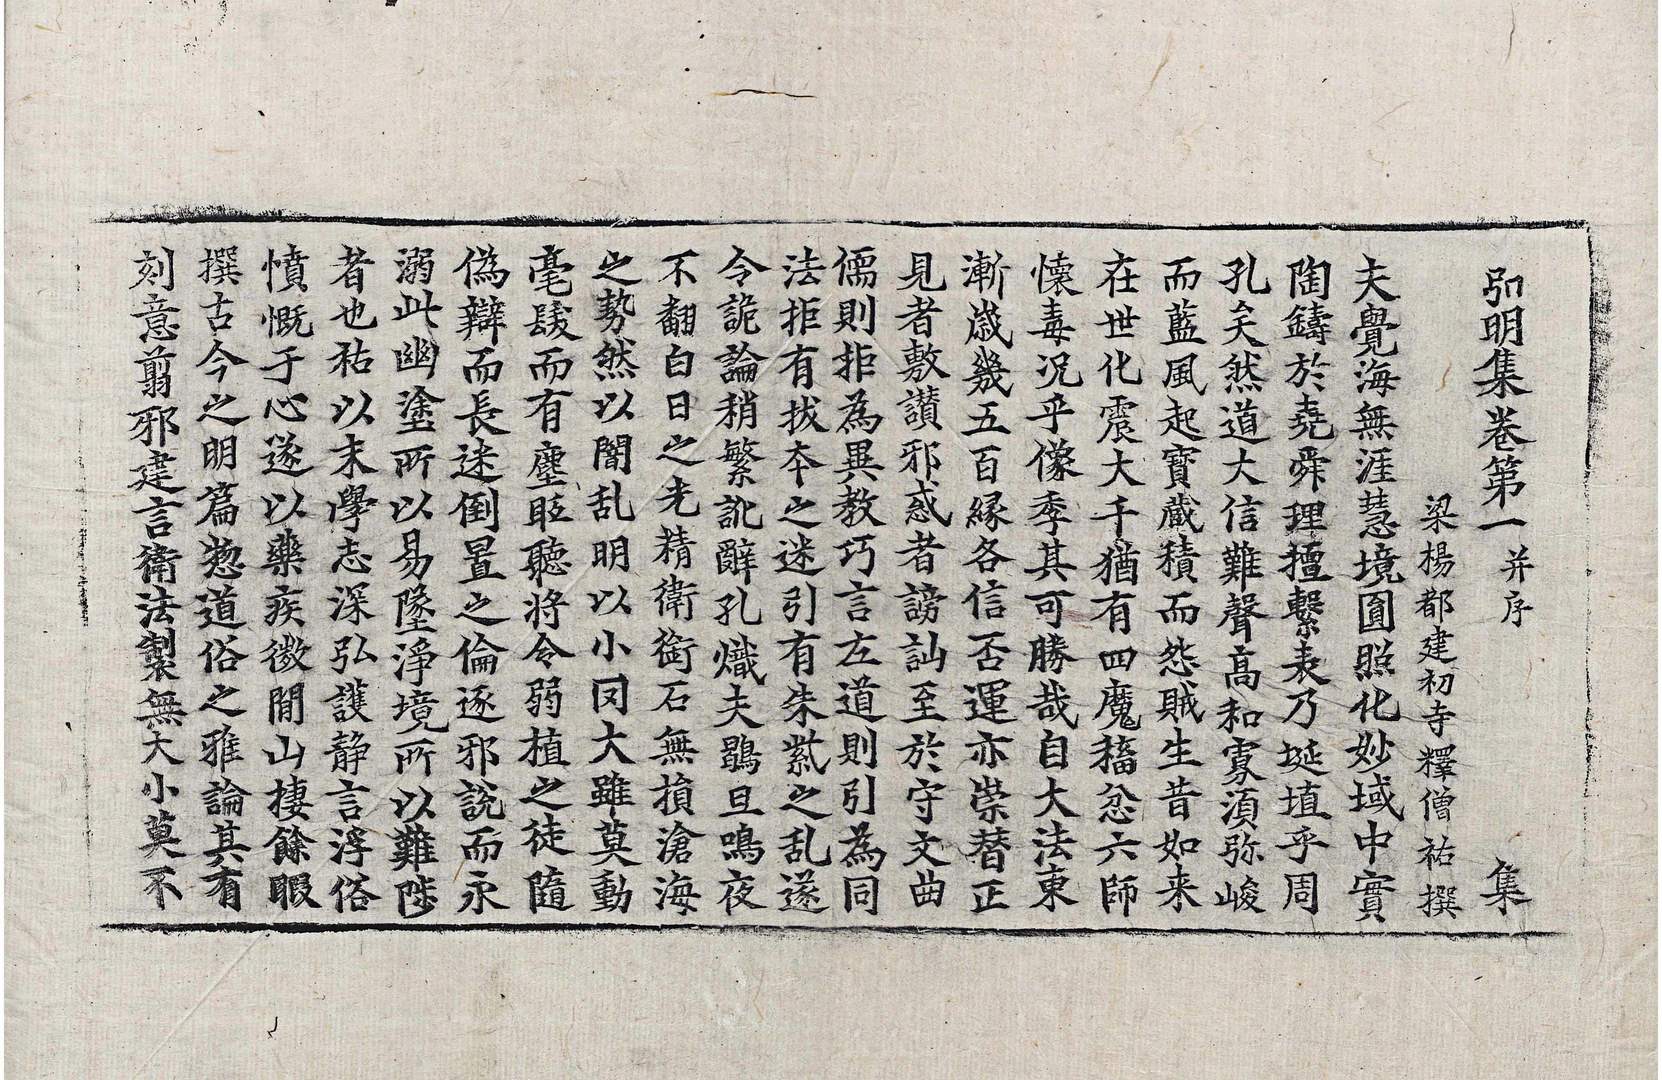 弘明集卷第一 并序 集
梁楊都建初寺釋僧祐撰
夫覺海無涯慧境圓照化妙域中實
陶鑄於堯舜理擅繫表乃埏埴乎周
孔矣然道大信難聲高和寡湏弥峻
而藍風起寶藏積而怨賊生昔如来
在世化震大千猶有四魔稸忿六師
懷毒況乎像季其可勝哉自大法東
漸歲幾五百緣各信否運亦崇替正
見者敷讃邪惑者謗訕至於守文曲
儒則拒為異教巧言左道則引為同
法拒有拔本之迷引有朱紫之乱遂
令詭論稍繁訛辭孔熾夫鶡旦鳴夜
不翻白日之光精衛銜石無損滄海
之勢然以闇乱明以小罔大雖莫動
毫髮而有塵眂聽將令弱植之徒隨
偽辯而長迷倒置之倫逐邪說而永
溺此幽塗所以易墜淨境所以難陟
者也祐以末學志深弘護静言浮俗
憤慨于心遂以藥疾微閒山棲餘暇
撰古今之明篇惣道俗之雅論其有
刻意翦邪建言衛法製無大小莫不